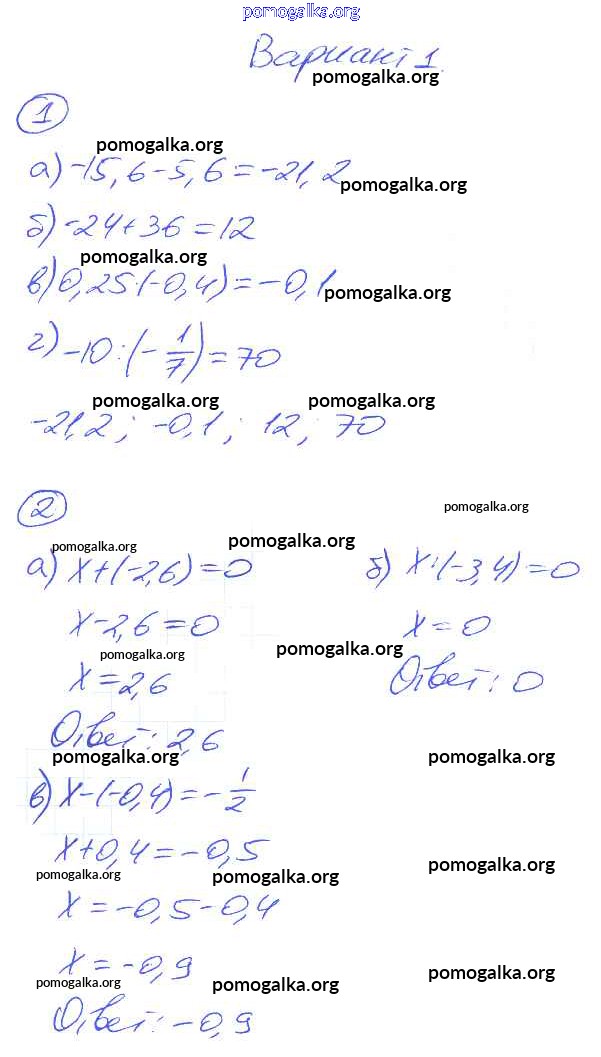 pomogalka.org
Вариант 1
pomogalka.org
1
pomogalka.org
а) -15,6-5,6=-21,2
pomogalka.org
б) -24+36=12
pomogalka.org
в) 0,25·(-0,4)=-0,1
pomogalka.org
г) -10:(-1/7)=70
pomogalka.org pomogalka.org
-21,2; -0,1; 12; 70
2
pomogalka.org
pomogalka.org pomogalka.org
а) x+(-2,6)=0 б) x·(-3,4)=0
x-2,6=0 x=0
pomogalka.org pomogalka.org
x=2,6 Ответ: 0
Ответ: 2,6
pomogalka.org pomogalka.org
в) x-(-0,4)=-1/2
x+0,4=-0,5
pomogalka.org pomogalka.org pomogalka.org
x=-0,5-0,4
x=-0,9
pomogalka.org pomogalka.org pomogalka.org
Ответ: -0,9